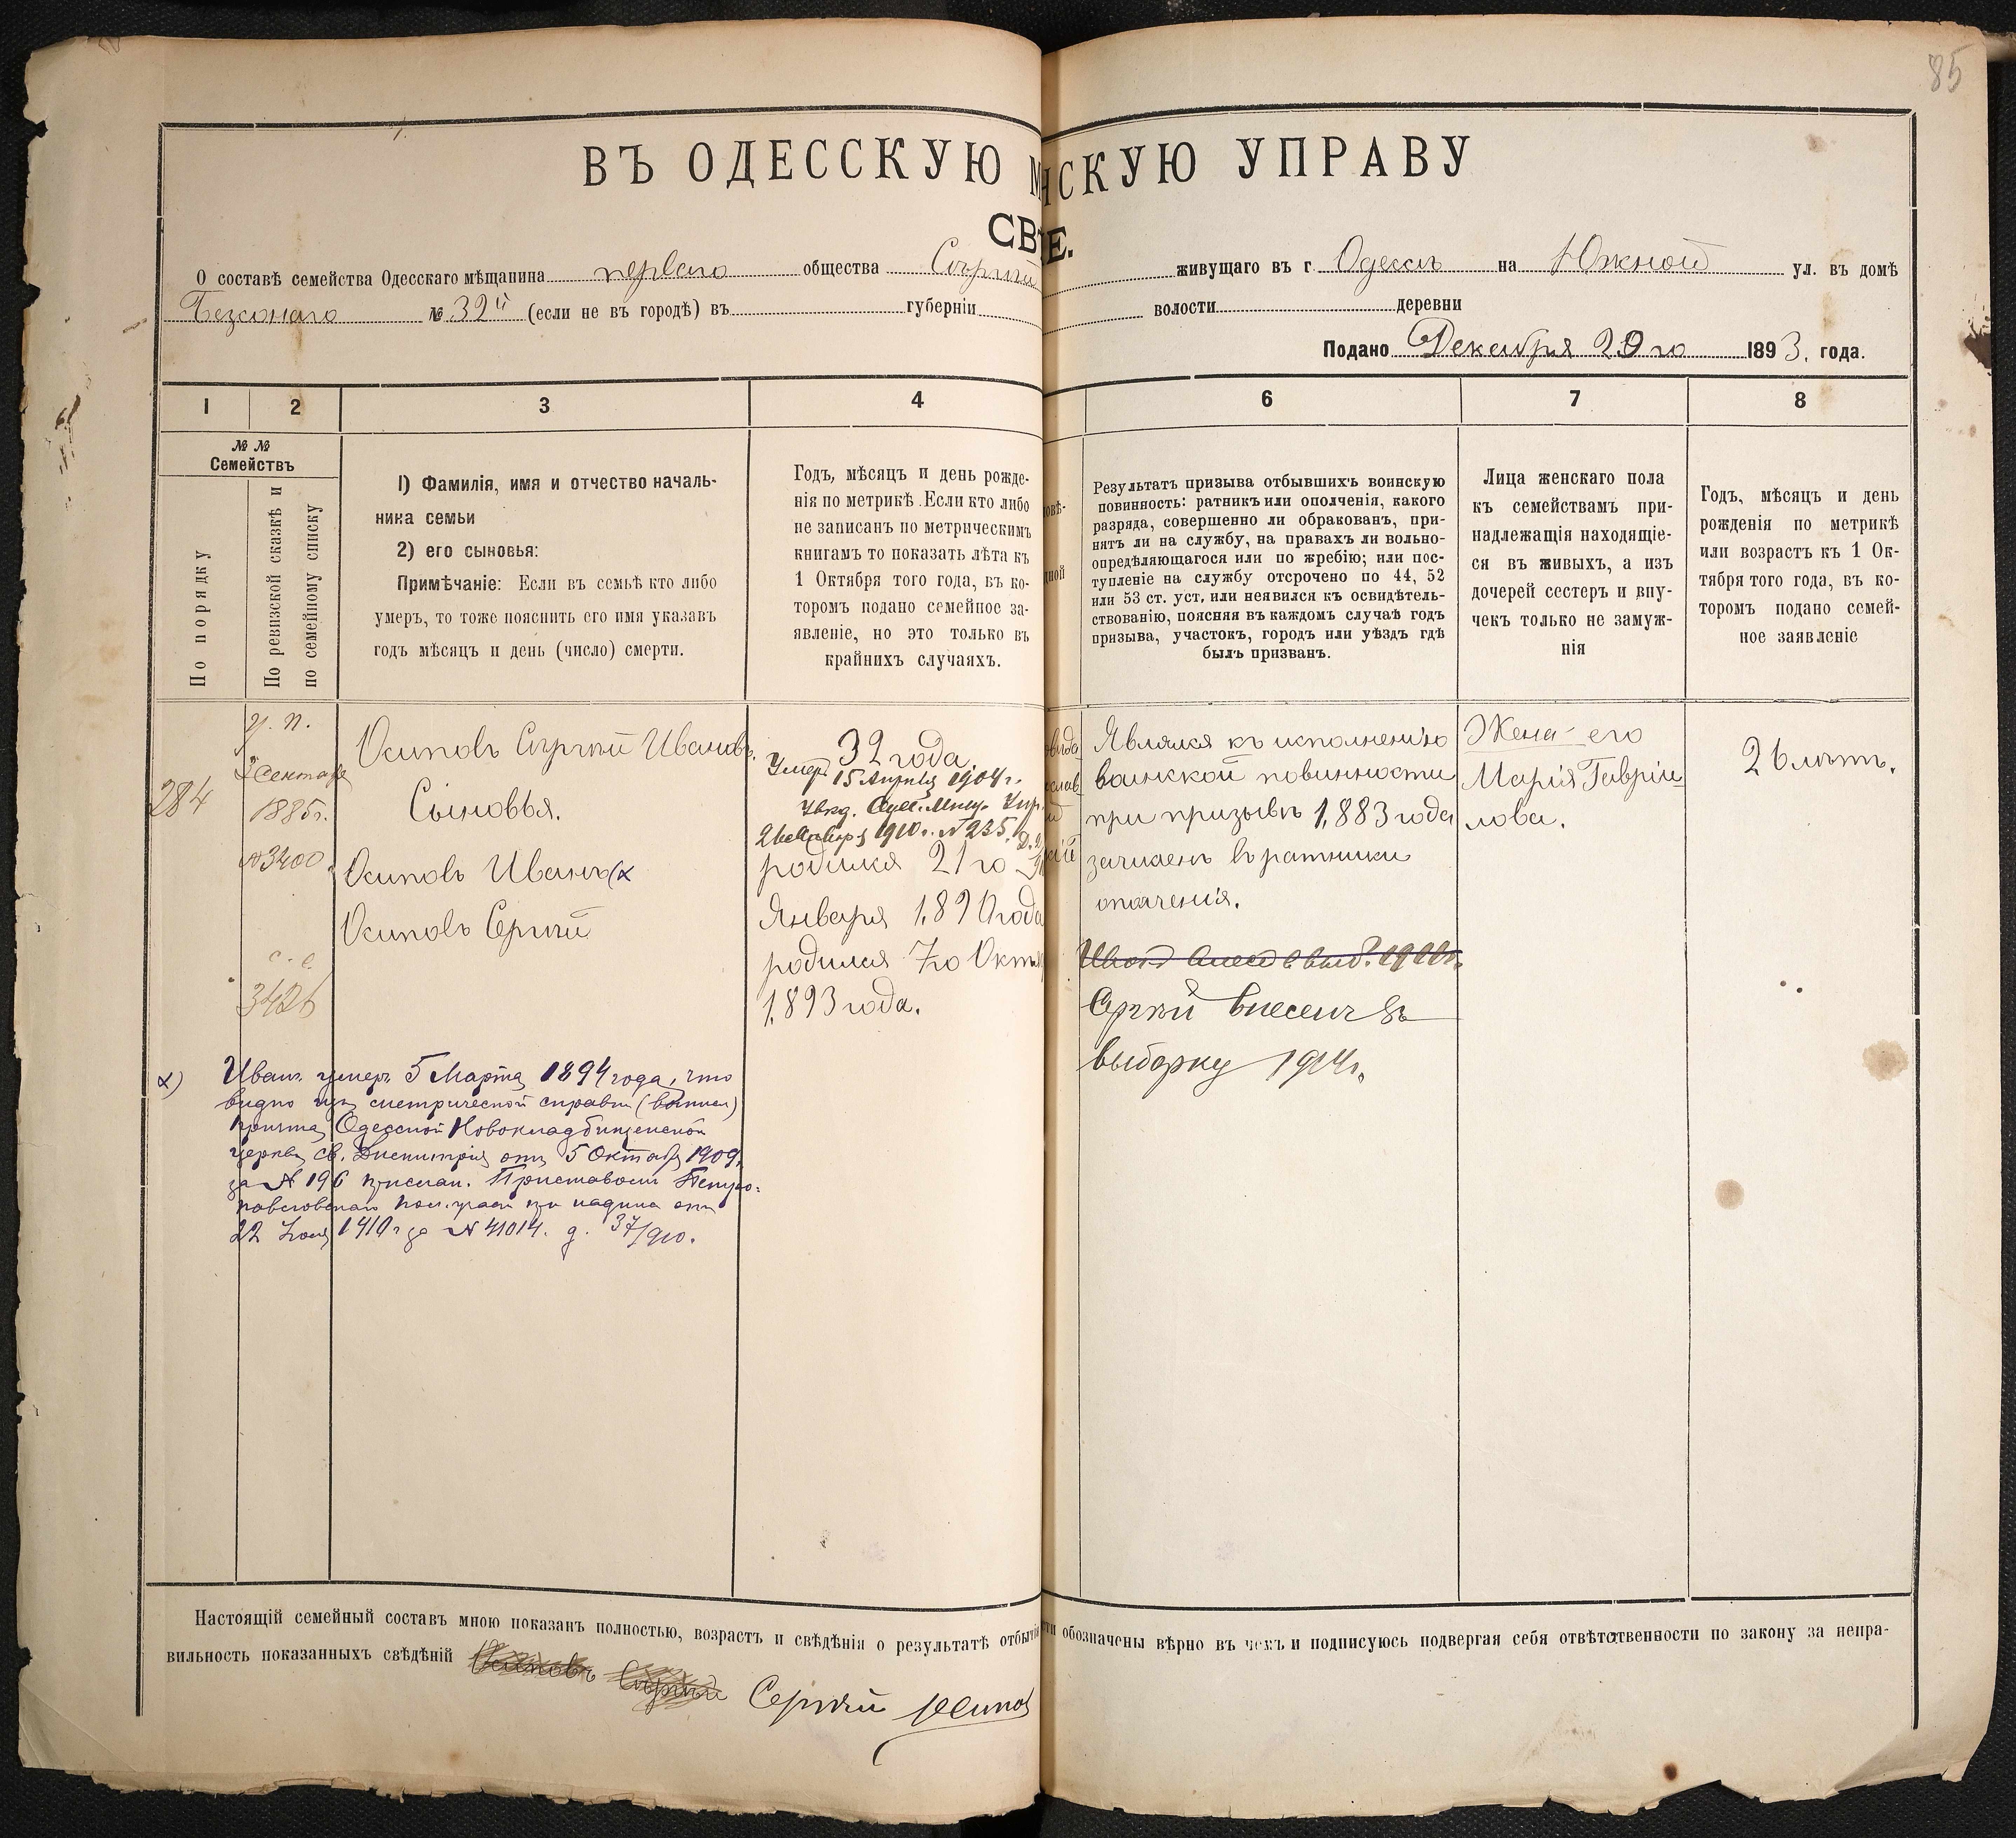 85
ВЪ ОДЕССКУЮ М
НСКУЮ УПРАВУ
СВ
Е.
О составѣ семейства Одесскаго мѣщанина перваго общества Сергѣй
живущаго въ г. Одессѣ на Южной ул. въ домѣ
№ 32й (если не въ городѣ) въ губерніи
волости деревни
Подано Декабря 29го 1893. года.
1 2 3 4
6 7 8
№ №
Семействъ
По порядку
По ревизской сказкѣ и
по семейному списку
1) Фамилія, имя и отчество началь-
ника семьи
2) его сыновья:
Примѣчаніе: Если въ семьѣ кто либо
умеръ, то тоже пояснить его имя указавъ
годъ мѣсяцъ и день (число) смерти.
Годъ, мѣсяцъ и день рожде-
нія по метрикѣ. Если кто либо
не записанъ по метрическимъ
книгамъ то показать лѣта къ
1 Октября того года, въ ко-
торомъ подано семейное за-
явленіе, но это только въ
крайнихъ случаяхъ.
овѣ-
дной
Результатъ призыва отбывшихъ воинскую
повинность: ратникъ или ополченія, какого
разряда, совершенно ли обракованъ, при-
нятъ ли на службу, на правахъ ли вольно-
опредѣляющагося или по жребію; или пос-
тупленіе на службу отсрочено по 44, 52
или 53 ст. уст, или неявился къ освидѣтель-
ствованію, поясняя въ каждомъ случаѣ годъ
призыва, участокъ, городъ или уѣздъ гдѣ
былъ призванъ.
Лица женскаго пола
къ семействамъ при-
надлежащія находящіе-
ся въ живыхъ, а изъ
дочерей сестеръ и вну-
чекъ только не замуж-
нія
Годъ, мѣсяцъ и день
рожденія по метрикѣ
или возрастъ къ 1 Ок-
тября того года, въ ко-
торомъ подано семей-
ное заявленіе
284
у. п.
Сентября
1885г.
№3400
с. с.
3426
Осиповъ Сергѣй Ивановъ.
Сыновья.
Осиповъ Иванъ (х
Осиповъ Сергѣй
32 года.
Умеръ 15 Апрѣля 1904г.
1910г. № 235.
родился 21го
Января 1.890 года
родился 7го Октя
1.893 года.
Являлся къ исполненію
воинской повинности
при призывѣ 1.883 года
зачисленъ въ ратники
ополченія.
Сергѣй внесенъ въ
выборку 1914г.
Жена его
Марія Гаврiи-
лова.
26 лѣтъ.
х) Иванъ умеръ 5 Марта 1894 года, что
видно изъ метрической справки
причта Одесской Новокладбищенской
церкви св. Димитрія отъ 5 Октября 1909г.
за № 196 прислан. Приставомъ Петро-
павловскаго при надписи отъ
22 1910 г за № 41014. д. 37/910.
Настоящій семейный составъ мною показанъ полностью, возрастъ и свѣдѣнія о результатѣ отбытія
ти обозначены вѣрно въ чемъ и подписуюсь подвергая себя отвѣтственности по закону за непра-
вильность показанныхъ свѣдѣній Осиповъ Сергѣй Сергѣй Осипов